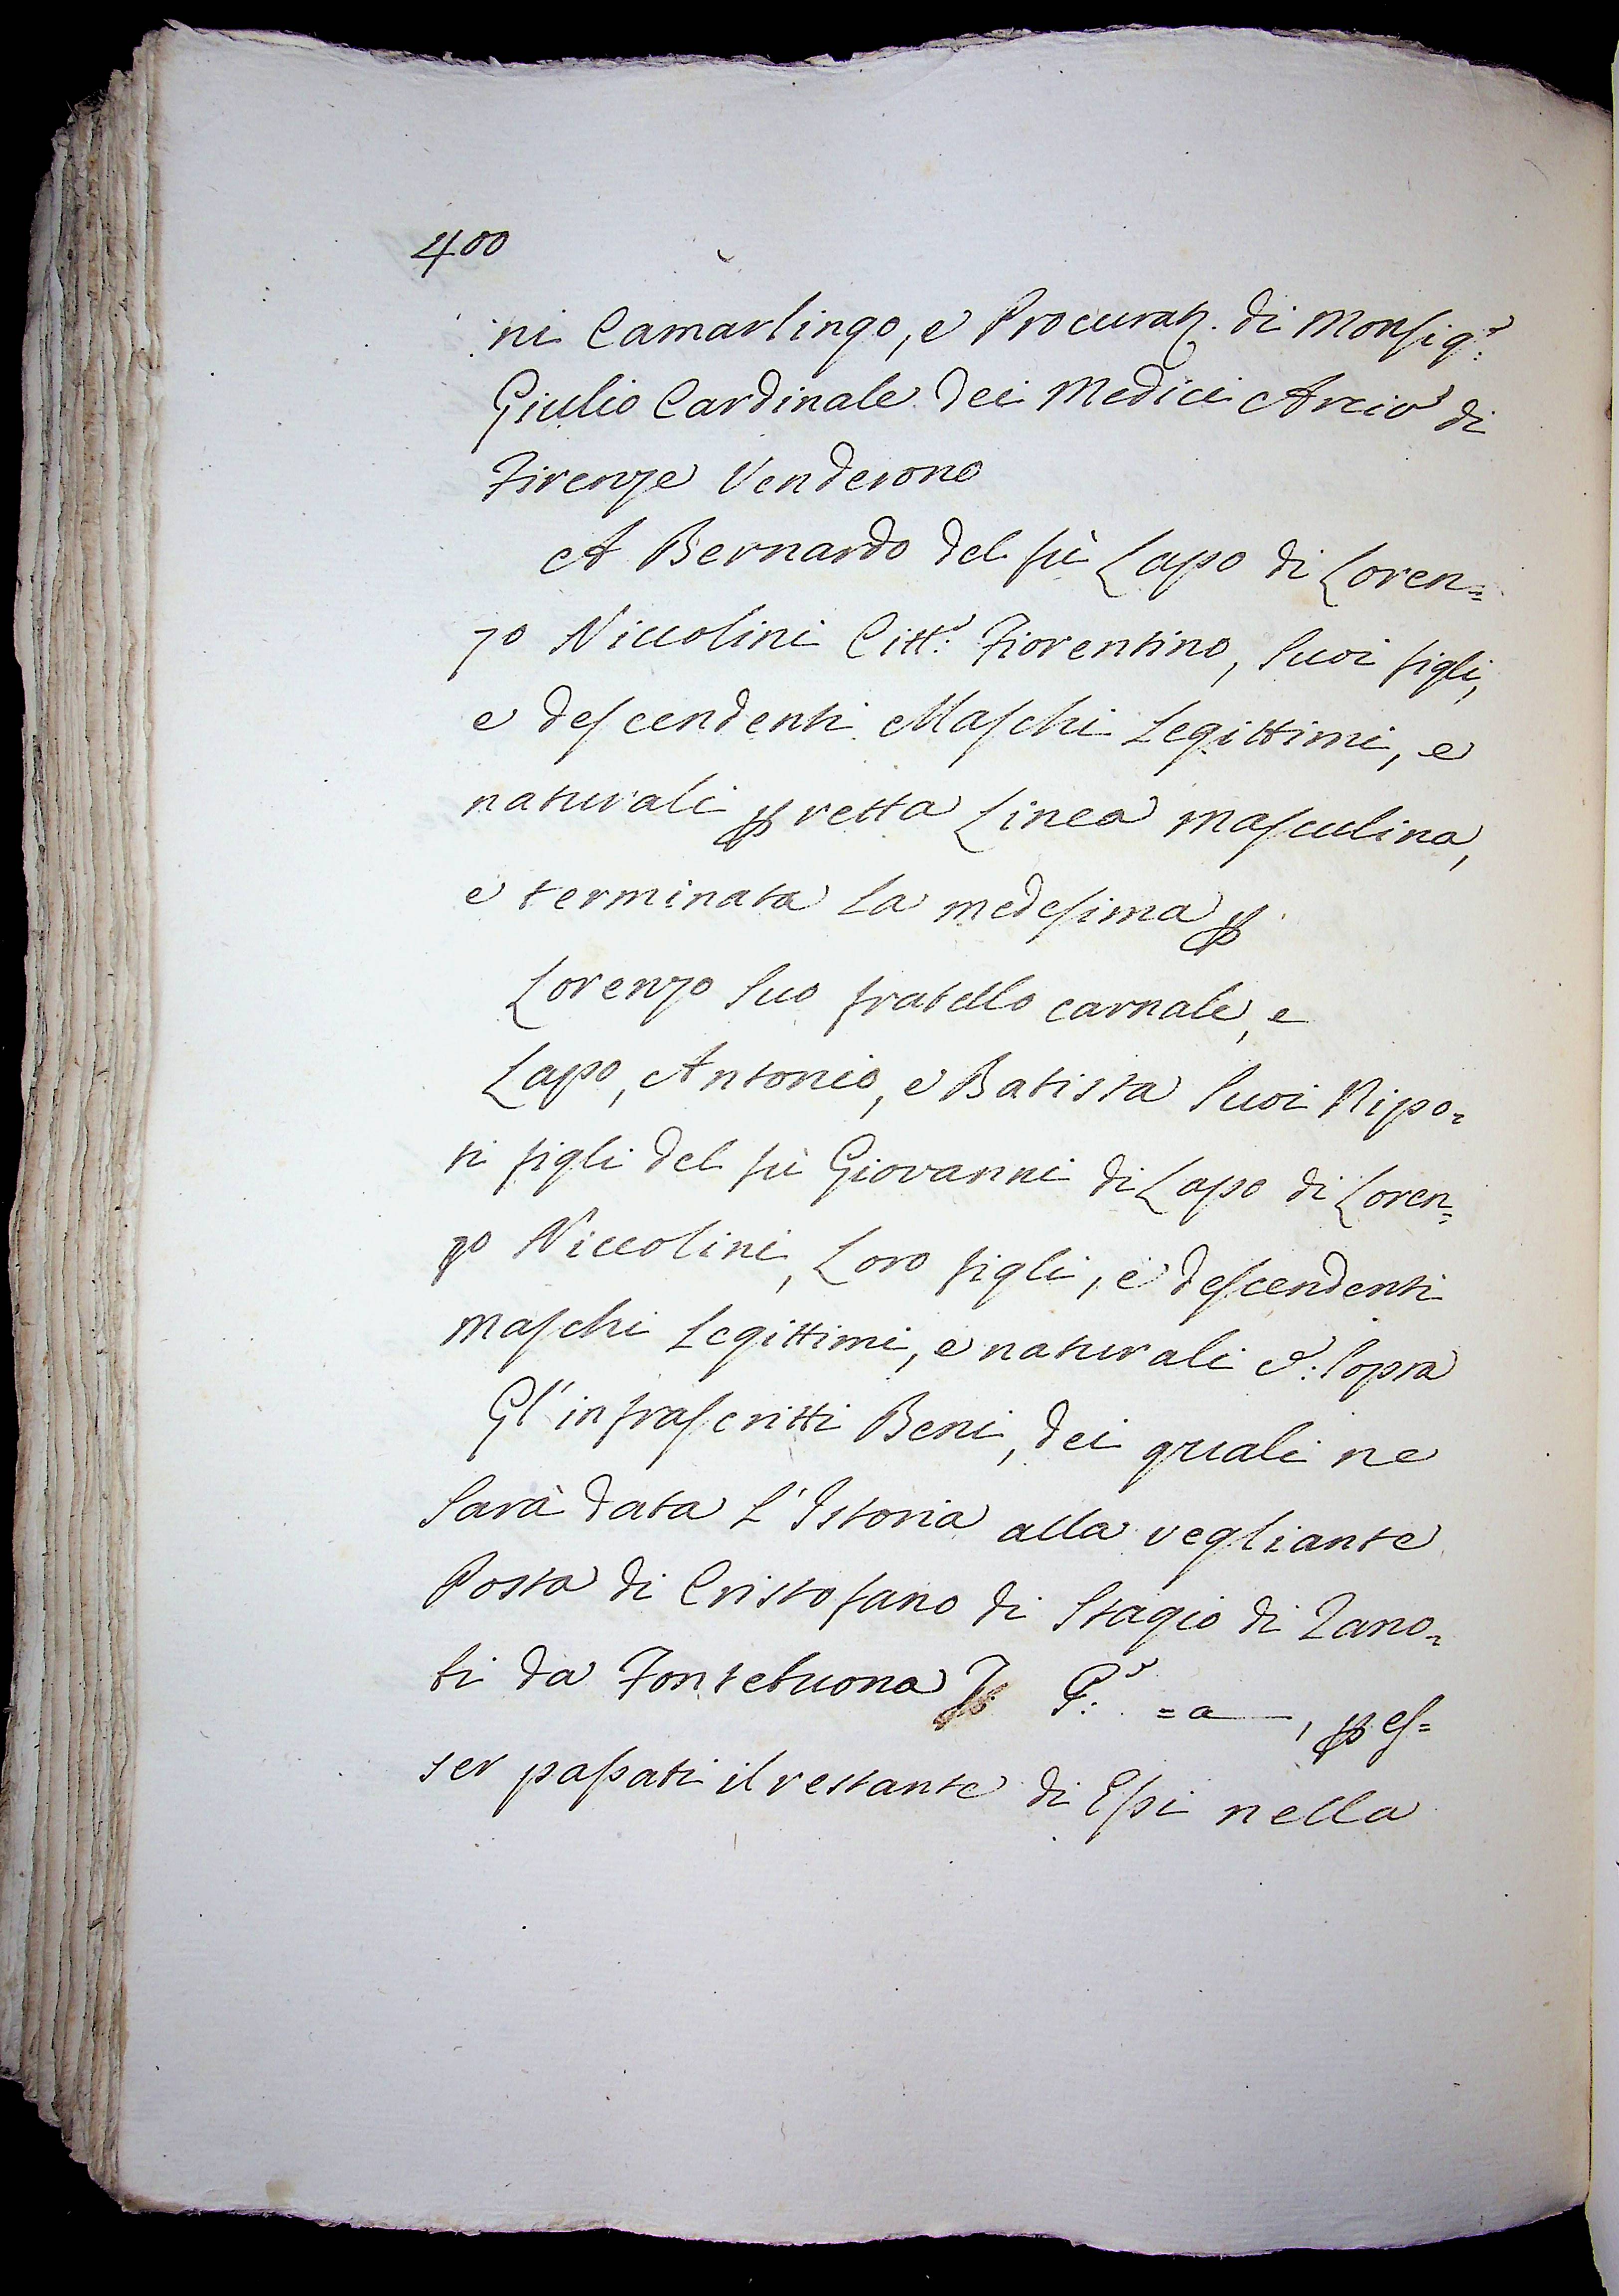 400
ni Camarlingo, e Procurat. di Monsig.r
Giulio Cardinale dei Medici Arcio di
Firenze Venderono
A Bernardo del fù Lapo di Loren=
zo Niccolini Citt.o Fiorentino, Suoi figli,
e descendenti Maschi Legittimi, e
naturali p retta Linea masculina,
e terminata La medesima p
Lorenzo Suo fratello carnale, e
Lapo, Antonio, e Batista Suoi Nipo=
ti figli del fù Giovanni di Lapo di Loren=
zo Niccolini, Loro figli, e descendenti
maschi Legittimi, e naturali e: Sopra
Gl'infrascritti Beni, dei quali ne
Sarà data L'Istoria alla vegliante
Posta di Cristofano di Stagio di Zano=
bi da Fontebuona = a —, p es=
ser passati il restante di Essi nella